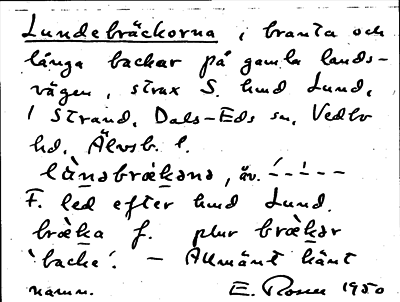 Lundebräckorna, branta och
långa backar på gamla lands-
vägen, strax S. hmd Lund,
1 Strand, Dals-Eds sn, Vedbo
hd, Älvsb. l.
lùnəbrækənə, äv. – ́ – – ̀ – –
F. led efter hmd Lund.
bræ̀ka f. plur bræ̀kər
'backe'. – Allmänt känt
namn. E. Rosen 1950